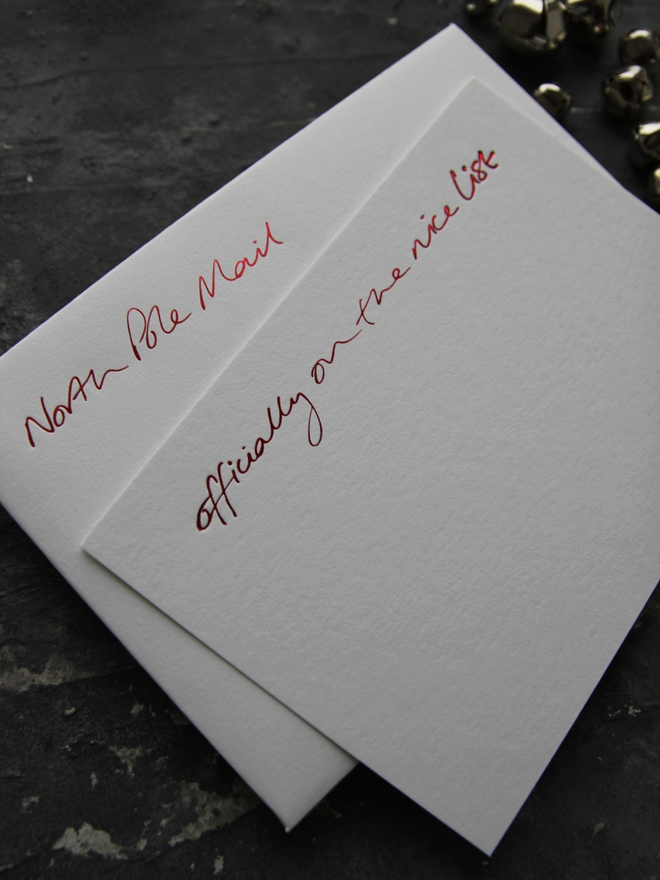 North Pole Mail
officially on the nice list